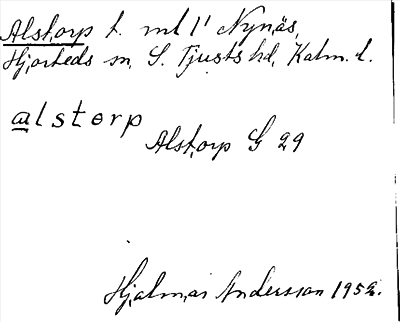 Alstorp t. ml 1' Nynäs,
Hjorteds sn, S. Tjusts hd, Kalm. l.
alstorp
Alstorp G 29
Hjalmar Andersson 1952.